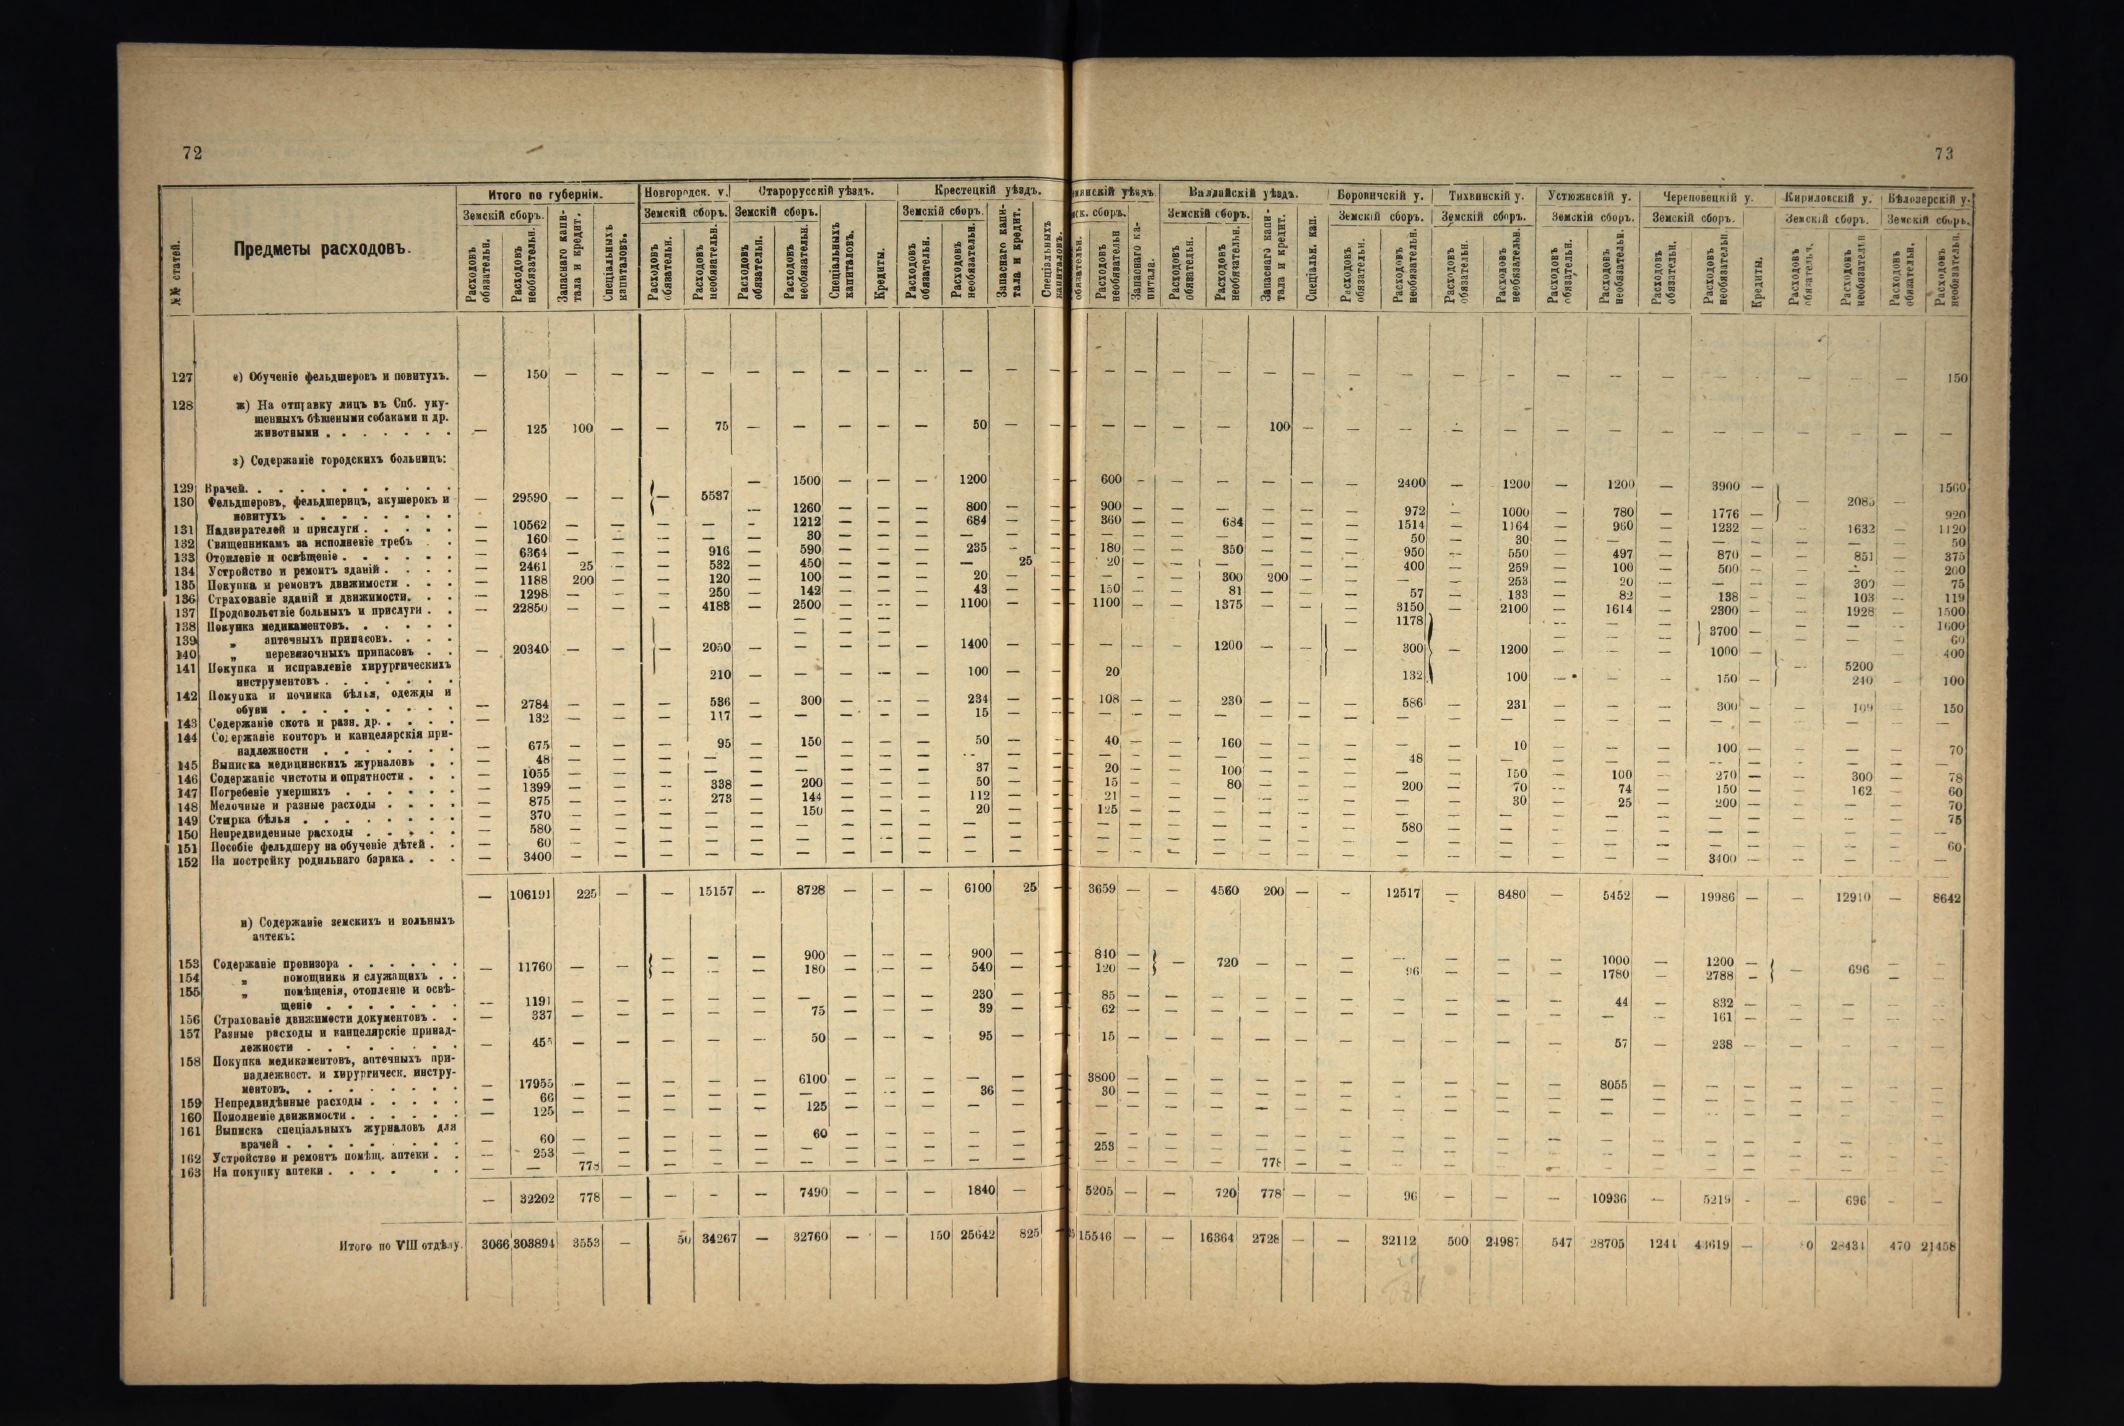 72
73
Итого по губерніи.
Новгородск. у.
Старорусскій уѣздъ.
Крестецкій уѣздъ.
уѣздъ.
Валдайскій уѣздъ.
Боровичскій у.
Тихвинскій у.
Устюжнскій у.
Череповецкій у.
Кириловскій у.
Бѣлозерскій у.
№№ статей.
Предметы расходовъ.
Земскій сборъ.
Расходовъ обязательн.
Расходовъ необязательн.
Запаснаго капитала и кредит.
Спеціальныхъ капиталовъ.
Кредиты.
127 е) Обученіе фельдшеровъ и повитухъ. — 150 — — — — — — — — — — — — — — — — — — — — — — — — — — — — — — 150
128 ж) На отправку лицъ въ Спб. уку-
шенныхъ бѣшеными собаками и др.
животными . . . . . . . — 125 100 — — 75 — — — — — 50 — — — — — — 100 — — — — — — — — — — — — — —
з) Содержаніе городскихъ больницъ:
129 Врачей. — 1500 — — — 1200 — 600 — — — — — — 2400 — 1200 — 1200 — 3900 — 1560
130 Фельдшеровъ, фельдшерицъ, акушерокъ и — 29590 — — — 5537
повитухъ — 1260 — — — 800 — 900 — — — — 972 — 1000 — 780 — 1776 — 920
131 Надзирателей и прислуги — 10562 — — — — — 1212 — — — 684 — 360 — — 684 — — — 1514 — 1164 — 960 — 1232 — — 1632 — 1120
132 Священникамъ за исполненіе требъ — 160 — — — — — 30 — — — — — — — — — — — 50 — 30 — — — — — — — — 50
133 Отопленіе и освѣщеніе — 6364 — — — 916 — 590 — — — 235 — — 180 — — 350 — — — 950 — 550 — 497 — 870 — — 851 — 375
134 Устройство и ремонтъ зданій — 2461 25 — — 532 — 450 — — — — 25 — 20 — — — — — — 400 — 259 — 100 — 500 — — — — 200
135 Покупка и ремонтъ движимости — 1188 200 — — 120 — 100 — — — 20 — — — — — 300 200 — — — — 253 — 20 — — — — 300 — 75
136 Страхованіе зданій и движимости. — 1298 — — — 250 — 142 — — — 43 — — 150 — — 81 — — — 57 — 133 — 82 — 138 — — 103 — 119
137 Продовольствіе больныхъ и прислуги — 22850 — — — 4188 — 2500 — — — 1100 — — 1100 — — 1375 — — — 3150 — 2100 — 1614 — 2300 — — 1928 — 1500
138 Покупка медикаментовъ. — — — — 1178 — — — 3700 — — — 1600
139 „ аптечныхъ припасовъ. — — — — — 60
140 „ перевязочныхъ припасовъ — 20340 — — — 2050 — — — — — 1400 — — — — — 1200 — — — 300 — 1200 — — — 1000 — 400
141 Покупка и исправленіе хирургическихъ 5200
инструментовъ 210 — — — — — 100 — — 20 132 100 — — — 150 — 240 — 100
142 Покупка и починка бѣлья, одежды и
обуви — 2784 — — — 536 — 300 — — — 234 — — 108 — — 230 — — — 586 — 231 — — — 300 — — 109 — 150
143 Содержаніе скота и разн. др. — 132 — — — 117 — — — — — 15 — — — — — — — — — — — — — — — — — — — — —
144 Содержаніе конторъ и канцелярскія при-
надлежности — 675 — — — 95 — 150 — — — 50 — — 40 — — 160 — — — — — 10 — — — 100 — — — — 70
145 Выписка медицинскихъ журналовъ — 48 — — — — — — — — — — — — — — — — — — — 48 — — — — — — — — — — —
146 Содержаніе чистоты и опрятности — 1055 — — — — — — — — — 37 — — 20 — — 100 — — — — — 150 — 100 — 270 — — 300 — 78
147 Погребеніе умершихъ — 1399 — — — 338 — 200 — — — 50 — — 15 — — 80 — — — 200 — 70 — 74 — 150 — — 162 — 60
148 Мелочные и разные расходы — 875 — — — 273 — 144 — — — 112 — — 21 — — — — — — — — 30 — 25 — 200 — — — — 70
149 Стирка бѣлья — 370 — — — — — 150 — — — 20 — — 125 — — — — — — — — — — — — — — — — — 75
150 Непредвиденные расходы — 580 — — — — — — — — — — — — — — — — — — — 580 — — — — — — — — — — —
151 Пособіе фельдшеру на обученіе дѣтей — 60 — — — — — — — — — — — — — — — — — — — — — — — — — — — — — — 60
152 На постройку родильнаго барака — 3400 — — — — — — — — — — — — — — — — — — — — — — — — — 3400 — — — — —
— 106191 225 — — 15157 — 8728 — — — 6100 25 — 3659 — — 4560 200 — — 12517 — 8480 — 5452 — 19986 — — 12910 — 8642
и) Содержаніе земскихъ и вольныхъ
аптекъ:
153 Содержаніе провизора — 11760 — — — — — 900 — — — 900 — — 840 — — 720 — — — — — — — 1000 — 1200 — — 696 — —
154 „ помощника и служащихъ — — — 180 — — — 540 — — 120 — 96 — — — 1780 — 2788 —
155 „ помѣщенія, отопленіе и освѣ-
щеніе — 1191 — — — — — — — — — 230 — — 85 — — — — — — — — — — 44 — 832 — — — — —
156 Страхованіе движимости документовъ — 337 — — — — — 75 — — — 39 — — 62 — — — — — — — — — — — — 161 — — — — —
157 Разные расходы и канцелярскіе принад-
лежности — — — — — — 50 — — — 95 — — 15 — — — — — — — — — — 57 — 238 — — — — —
158 Покупка медикаментовъ, аптечныхъ при-
надлежност. и хирургическ. инстру-
ментовъ. — 17955 — — — — — 6100 — — — — — — 3800 — — — — — — — — — — 8055 — — — — — — —
159 Непредвидѣнные расходы — 66 — — — — — — — — — 36 — — 30 — — — — — — — — — — — — — — — — — —
160 Пополненіе движимости — 125 — — — — — 125 — — — — — — — — — — — — — — — — — — — — — — — — —
161 Выписка спеціальныхъ журналовъ для
врачей — 60 — — — — — 60 — — — — — — — — — — — — — — — — — — — — — — — — —
162 Устройство и ремонтъ помѣщ. аптеки — 253 — — — — — — — — — — — — 253 — — — — — — — — — — — — — — — — — —
163 На покупку аптеки — — 778 — — — — — — — — — — — — — — — 778 — — — — — — — — — — — — — —
— 32202 778 — — — — 7490 — — — 1840 — — 5205 — — 720 778 — — 96 — — — 10936 — 5219 — — 696 — —
Итого по VIII отдѣлу. 3066 303894 3553 — 50 34267 — 32760 — — 150 25642 825 — 15546 — — 16364 2728 — — 32112 500 24987 547 28705 1244 — 470 21458